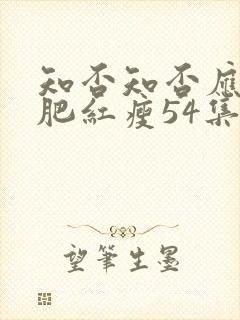 知否知否應
肥紅瘦54集
望筆生墨